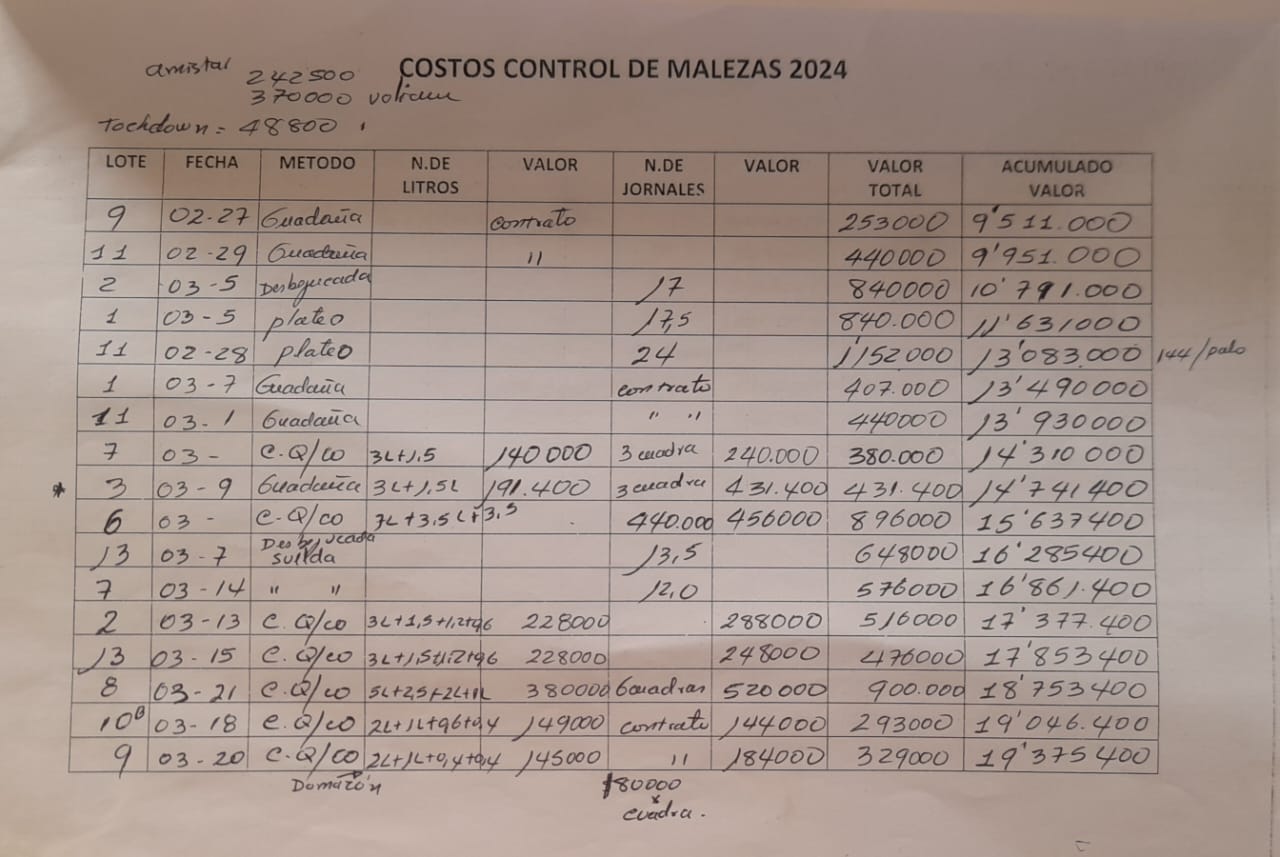 amistar 242500
COSTOS CONTROL DE MALEZAS 2024
370000 voliam
Tochdown = 48800
LOTE FECHA METODO N.DE LITROS VALOR N.DE JORNALES VALOR VALOR TOTAL ACUMULADO VALOR
9 02-27 Guadaña contrato 253000 9'511.000
11 02-29 Guadaña " 440000 9'951.000
2 03-5 Desbejucada 17 840000 10'791.000
1 03-5 plateo 17,5 840.000 11'631000
11 02-28 plateo 24 1'152000 13'083.000 144/palo
1 03-7 Guadaña contrato 407.000 13'490000
11 03-1 Guadaña " " 440000 13'930000
7 03- C.Q/co 3L+1.5 140000 3 cuadra 240.000 380.000 14'310000
* 3 03-9 Guadaña 3L+1,5L 191.400 3 cuadra 431.400 431.400 14'741400
6 03- C-Q/co 7L+3,5L+3,5 440.000 456000 896000 15'637400
13 03-7 Desbejucada suelda 13,5 648000 16'285400
7 03-14 " " 12,0 576000 16'861.400
2 03-13 C.Q/co 3L+1,5+1,2+96 228000 288000 516000 17'377.400
13 03-15 C.Q/co 3L+1,5+1,2+96 228000 248000 476000 17'853400
8 03-21 C.Q/co 5L+2,5+2L+1L 380000 6cuadras 520000 900.000 18'753400
10B 03-18 C.Q/co 2L+1L+0,6+0,4 149000 contrato 144000 293000 19'046.400
9 03-20 C.Q/co 2L+1L+0,4+0,4 145000 " 184000 329000 19'375400
Domazón $80000
x
cuadra.